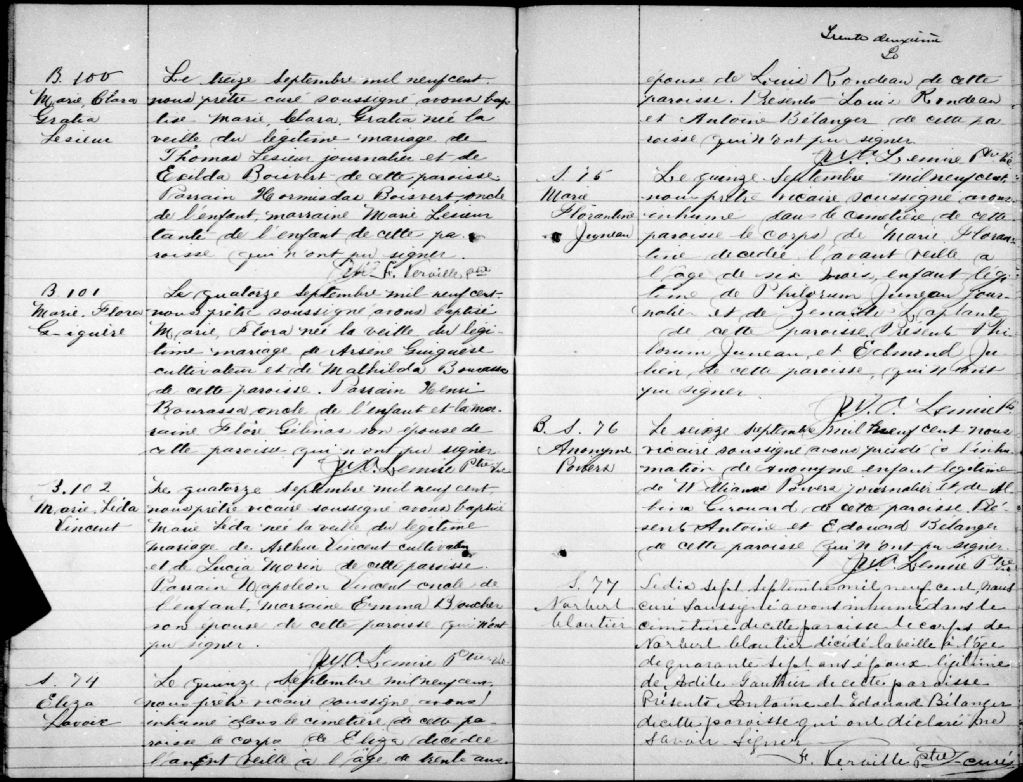 B. 100
Marie, Clara
Gratia
Lesieur
Le treize septembre mil neuf cent
nous prêtre curé soussigné avons bap
tisé Marie, Clara, Gratia née la
veille du légitime mariage de
Thomas Lesieur journalier et de
Exilda Boisvert de cette paroisse.
Parrain Hormisdas Boisvert, oncle
de l'enfant, marraine Marie Lesieur
tante de l'enfant de cette pa
roisse qui n'ont pu signer.
F. Verville, ptre
B. 101
Marie, Flora
Giguère
Le quatorze septembre mil neuf cent
nous prêtre soussigné avons baptisé
Marie, Flora née la veille du légi
time mariage de Arsène Guiguère
cultivateur et de Mathilda Bourassa
de cette paroisse. Parrain Henri
Bourassa oncle de l'enfant et la mar
raine Flore Gélinas son épouse de
cette paroisse qui n'ont pu signer
Lemire Ptre Vic
B. 102
Marie, Lida
Vincent
Le quatorze septembre mil neuf cent
nous prêtre vicaire soussigné avons baptisé
Marie Lida née la veille du légitime
mariage de Arthur Vincent cultivateur
et de Lucia Morin de cette paroisse
Parrain Napoleon Vincent oncle de
l'enfant, marraine Emma Boucher
son épouse de cette paroisse qui n'ont
pu signer.
Lemire Ptre Vic
S. 74
Eliza
Lavoie
Le quinze septembre mil neuf cent
nous prêtre vicaire soussigné avons
inhumé dans le cimetière de cette pa
roisse le corps de Eliza décédée
l'avant veille à l'âge de trente ans
Trente deuxième
épouse de Louis Rondeau de cette
paroisse. Présents Louis Rondeau
et Antoine Bélanger de cette pa
roisse qui n'ont pu signer
Lemire Ptre Vic
S. 75
Marie
Florantine
Juneau
Le quinze septembre mil neuf cent
nous prêtre vicaire soussigné avons
inhumé dans le cimetière de cette
paroisse le corps de Marie Floran
tine décédée l'avant veille à
l'âge de six mois, enfant légi
time de Philorum Juneau jour
nalier et de Zénaïde Laplante
de cette paroisse. Présent Phi
lorum Juneau, et Edmond Ju
lien de cette paroisse, qui n'ont
pu signer.
Lemire Ptre
B. S. 76
Anonyme
Powers
Le seize septembre mil neuf cent nous
vicaire soussigné avons présidé à l'inhu
mation de Anonyme enfant légitime
de William Powers journalier et de Al
bina Girouard de cette paroisse. Pré
sent Antoine et Edouard Bélanger
de cette paroisse qui n'ont pu signer
Lemire Ptre
S. 77
Norbert
Cloutier
Le dix sept septembre mil neuf cent, nous
curé soussigné avons inhumé dans le
cimetière de cette paroisse le corps de
Norbert Cloutier décédé la veille à l'âge
de quarante sept ans époux légitime
de Adèle Gauthier de cette paroisse
Présents Antoine et Edouard Bélanger
de cette paroisse qui ont déclaré ne
savoir signer
F. Verville ptre curé